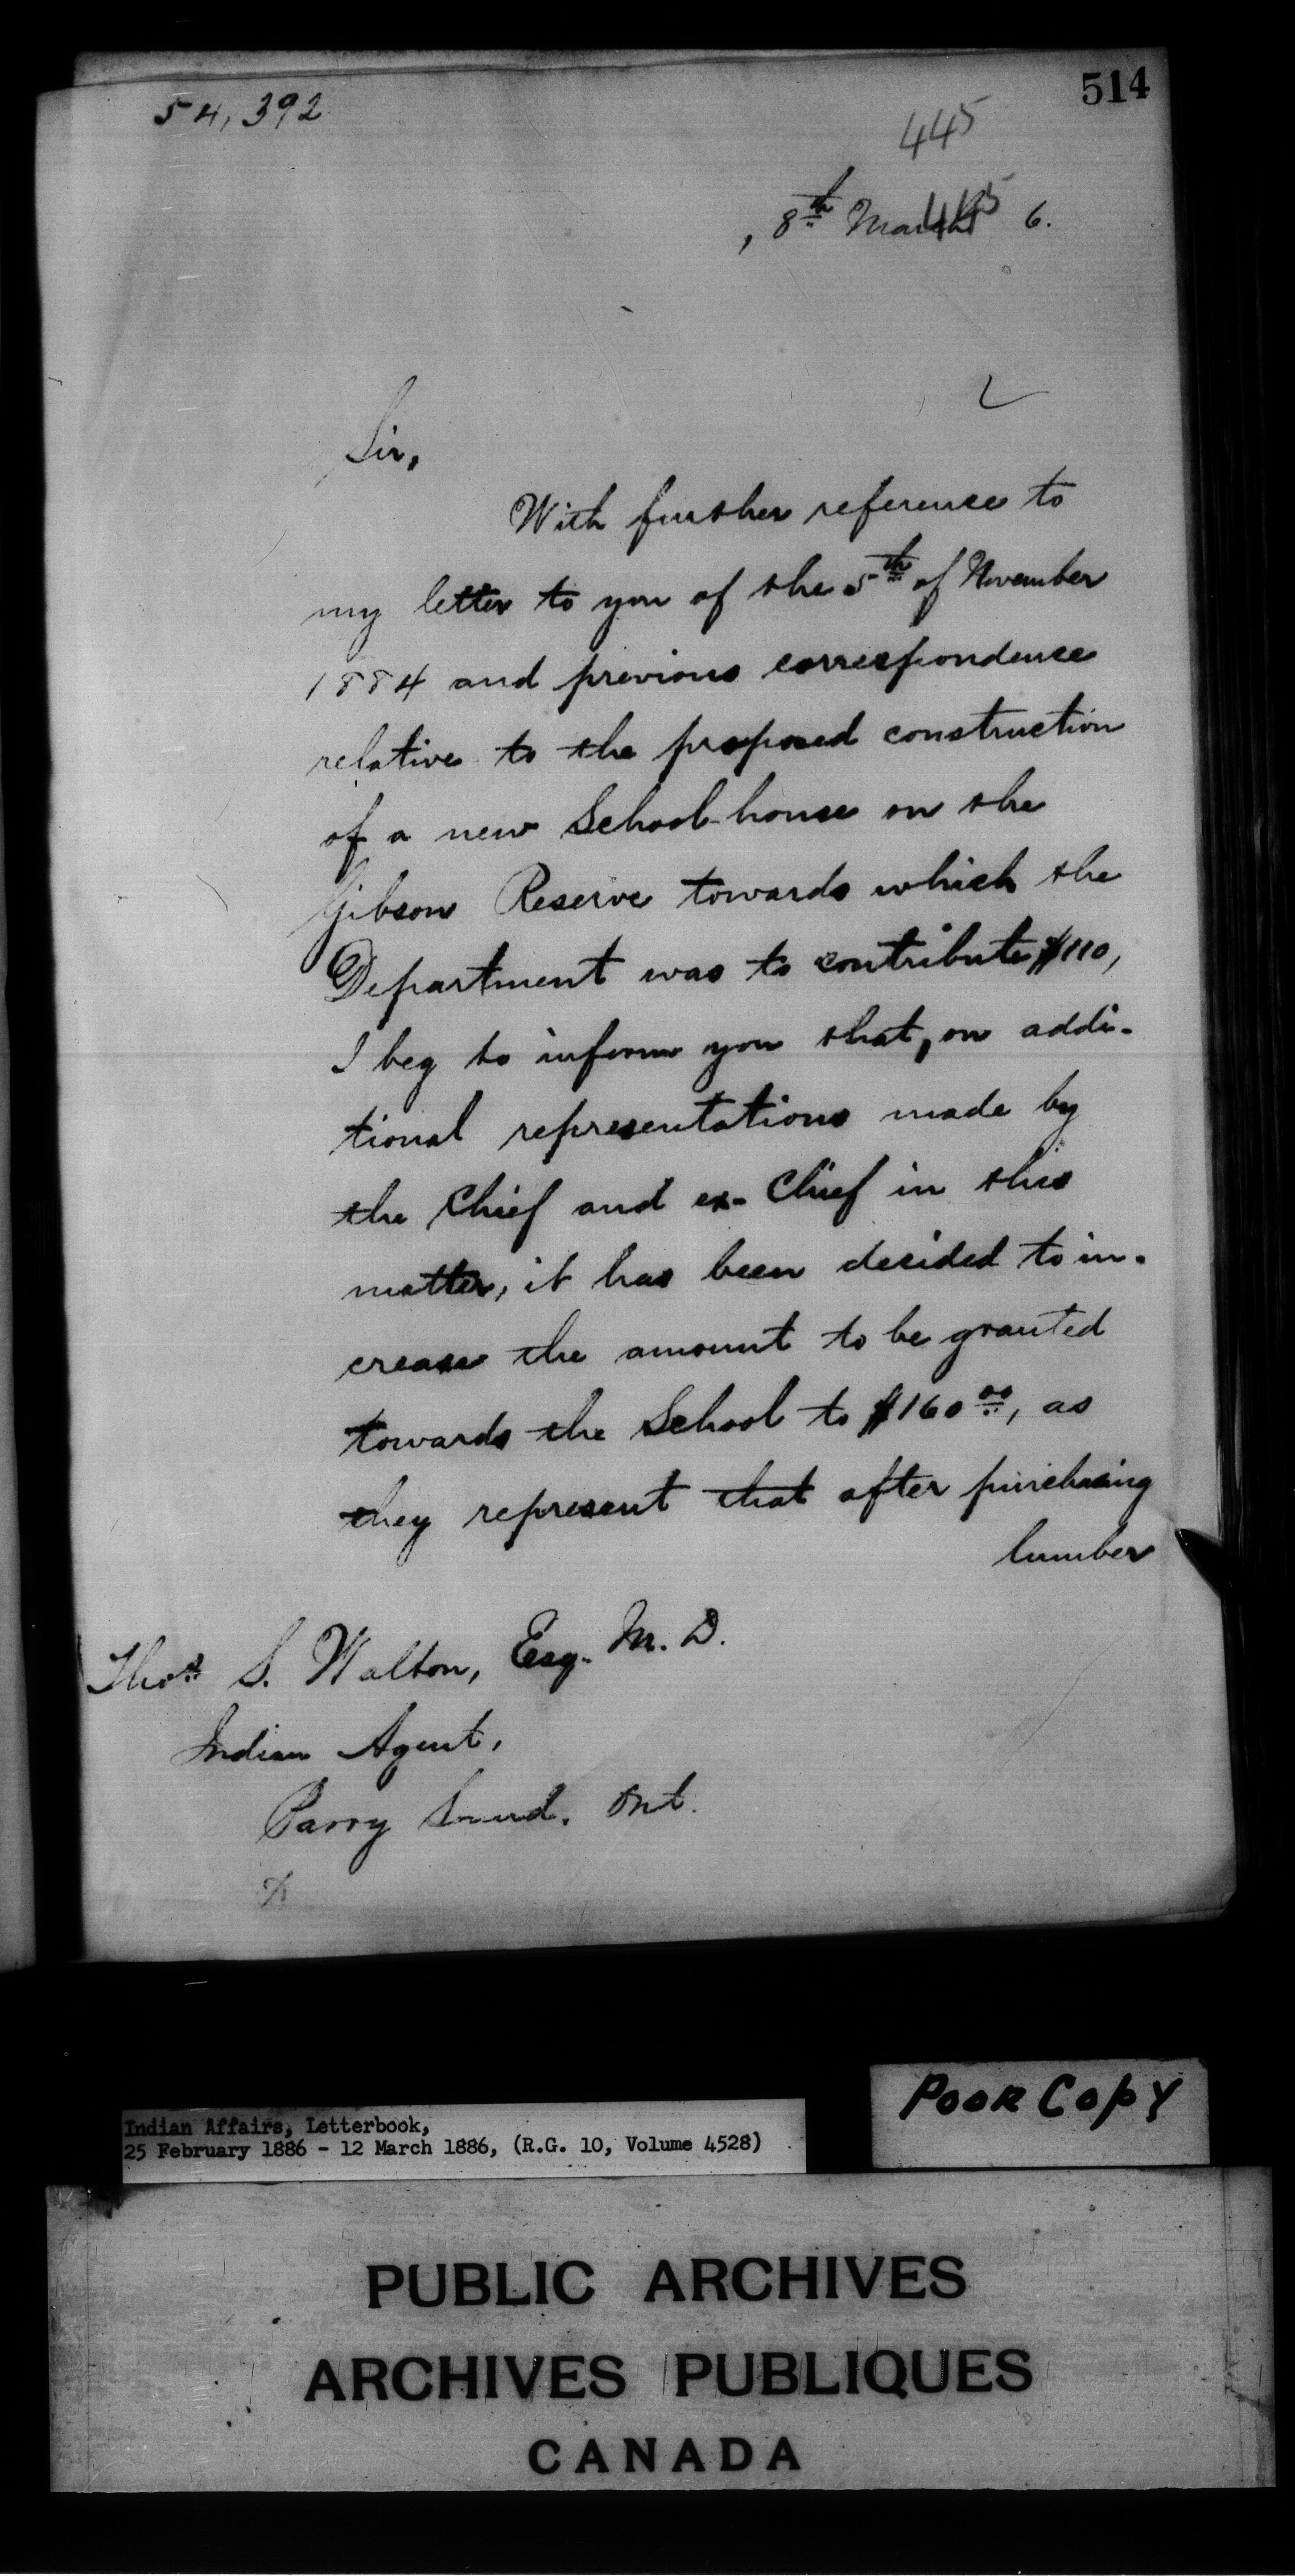 54,392
514
445
, 8th March 6.
445
Sir,
With further reference to
my letter to you of the 5th of November
1884 and previous correspondence
relative to the proposed construction
of a new School-house on the
Gibson Reserve towards which the
Department was to contribute $110,
I beg to inform you that, on addi-
tional representations made by
the Chief and ex-Chief in this
matter, it has been decided to in-
crease the amount to be granted
towards the School to $160 00, as
they represent that after purchasing
lumber
Thos S. Walton, Esq. M.D.
Indian Agent,
Parry Sound. Ont.
Poor Copy
Indian Affairs, Letterbook,
25 February 1886 - 12 March 1886, (R.G. 10, Volume 4528)
PUBLIC ARCHIVES
ARCHIVES PUBLIQUES
CANADA